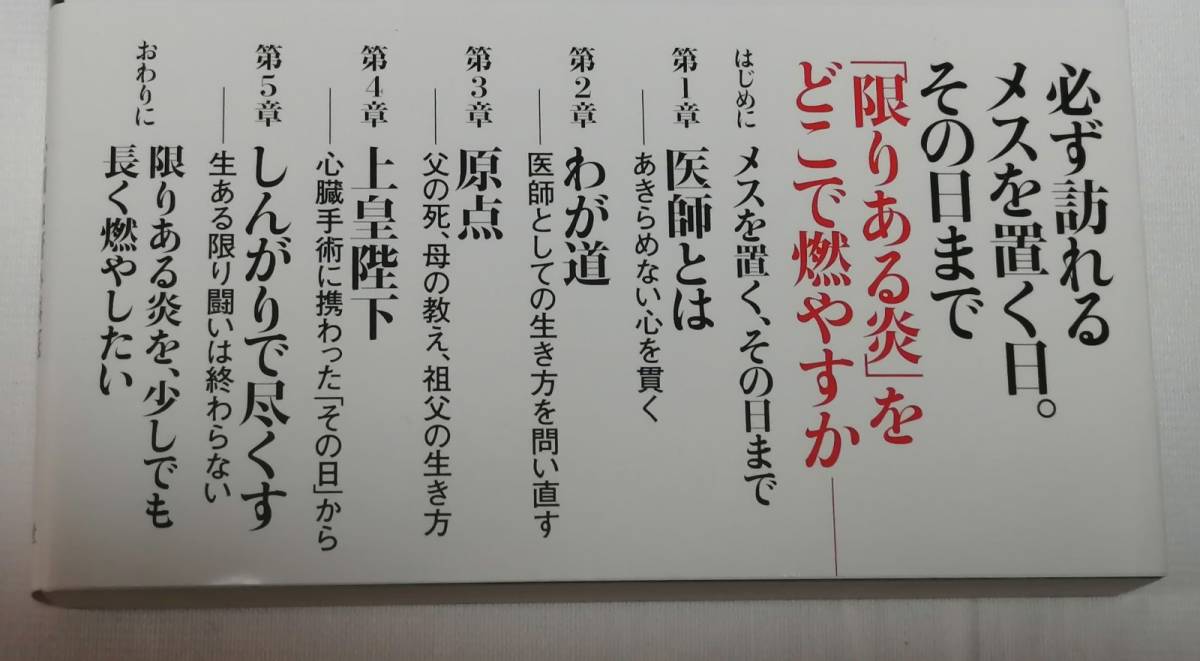 必ず訪れる
メスを置く日。
その日まで
「限りある炎」を
どこで燃やすか──
はじめに メスを置く、その日まで
第1章 医師とは
──あきらめない心を貫く
第2章 わが道
──医師としての生き方を問い直す
第3章 原点
──父の死、母の教え、祖父の生き方
第4章 上皇陛下
──心臓手術に携わった「その日」から
第5章 しんがりで尽くす
──生ある限り闘いは終わらない
おわりに 限りある炎を、少しでも
長く燃やしたい